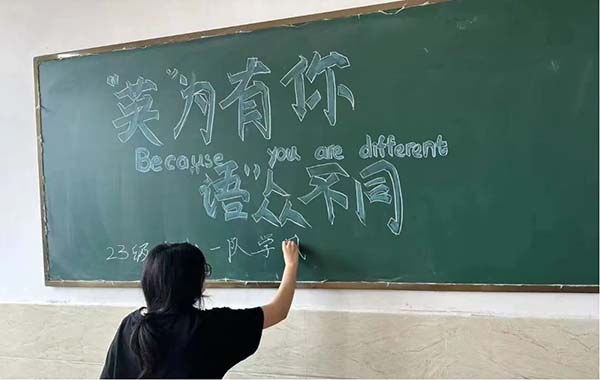 “英”为有你
Because you are different
“语”众不同
23级 一队学